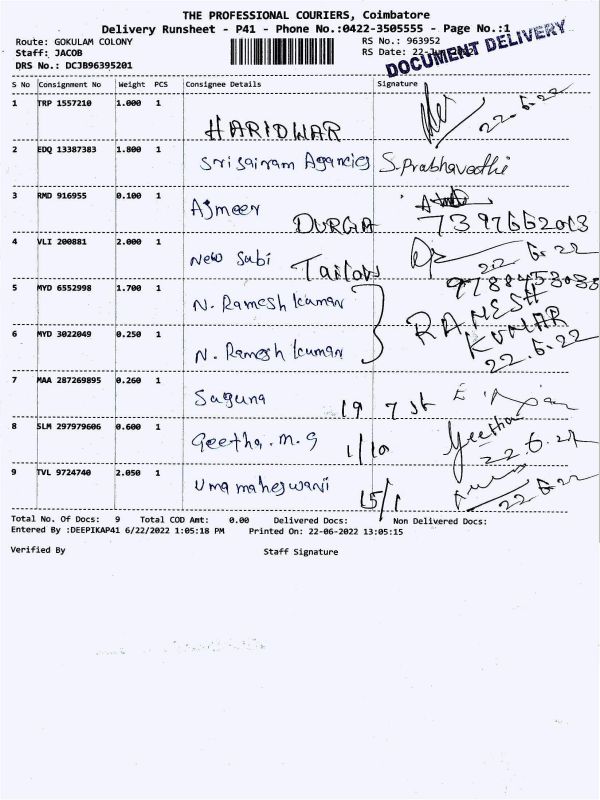 THE PROFESSIONAL COURIERS, Coimbatore
Delivery Runsheet - P41 - Phone No.:0422-3505555 - Page No.:1
Route: GOKULAM COLONY RS No.: 963952
Staff: JACOB RS Date: 22-Jun-2022
DRS No.: DCJB96395201
DOCUMENT DELIVERY
S No Consignment No Weight PCS Consignee Details Signature
1 TRP 1557210 1.000 1 HARIDWAR 22.6.22
2 EDQ 13387383 1.800 1 Srisairam Agancies S.Prabhavathi
3 RMD 916955 0.100 1 Ajmeer DURGA 7397662013
4 VLI 200881 2.000 1 New Subi Tailors 22.6.22
9788453035
5 MYD 6552998 1.700 1 N. Ramesh kumar RAMESH
6 MYD 3022049 0.250 1 N. Ramesh kumar KUMAR
22.6.22
7 MAA 287269895 0.260 1 Saguna 19 7 st
8 SLM 297979606 0.600 1 Geetha. M. G 1/10 Geetha
22.6.22
9 TVL 9724740 2.050 1 Uma maheswari 15/1
22.6.22
Total No. Of Docs: 9 Total COD Amt: 0.00 Delivered Docs: Non Delivered Docs:
Entered By :DEEPIKAP41 6/22/2022 1:05:18 PM Printed On: 22-06-2022 13:05:15
Verified By Staff Signature